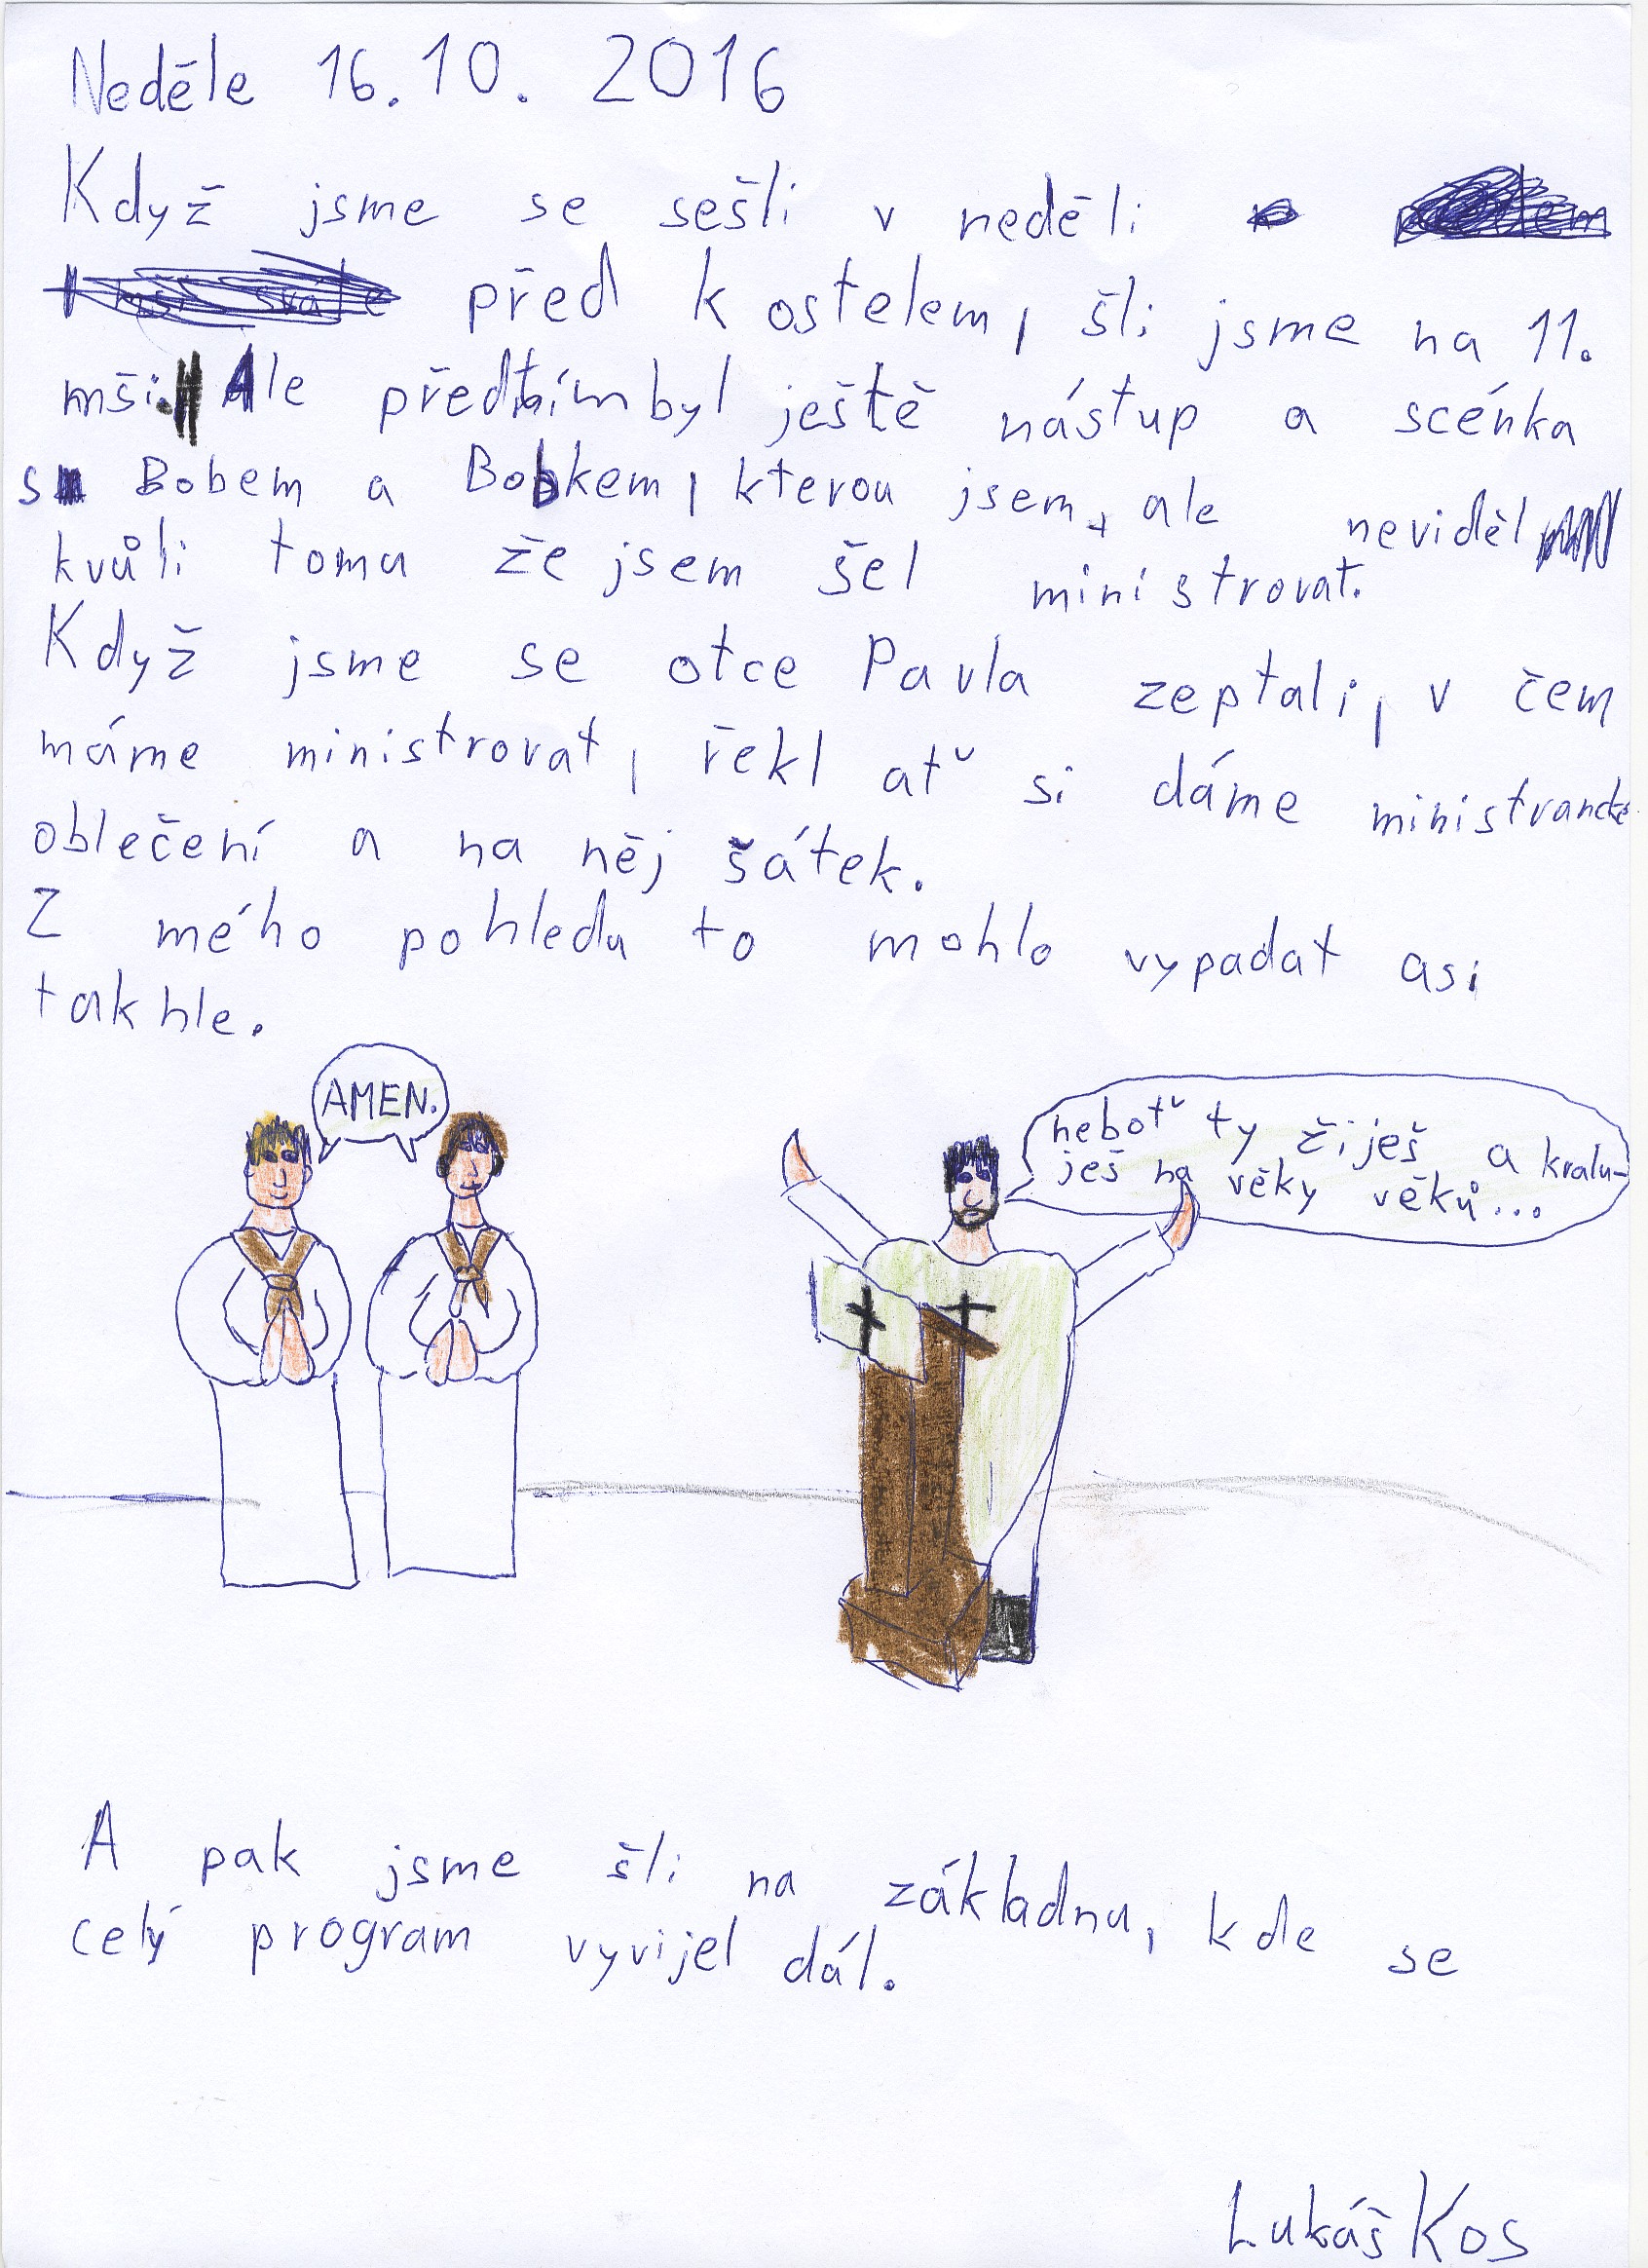 Neděle 16.10. 2016
Když jsme se sešli v neděli
před kostelem, šli jsme na 11.
mši. Ale předtím byl ještě nástup a scénka
s Bobem a Bobkem, kterou jsem, ale neviděl
kvůli tomu že jsem šel ministrovat.
Když jsme se otce Pavla zeptali, v čem
máme ministrovat, řekl ať si dáme ministrancké
oblečení a na něj šátek.
Z mého pohledu to mohlo vypadat asi
takhle.
AMEN.
neboť ty žiješ a kralu-
ješ na věky věků...
A pak jsme šli na základnu, kde se
celý program vyvijel dál.
Lukáš Kos